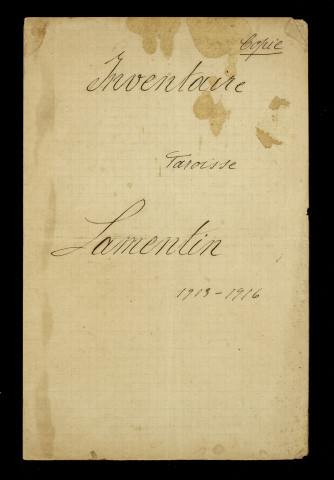 Copie
Inventaire
Paroisse
Lamentin
1913-1916